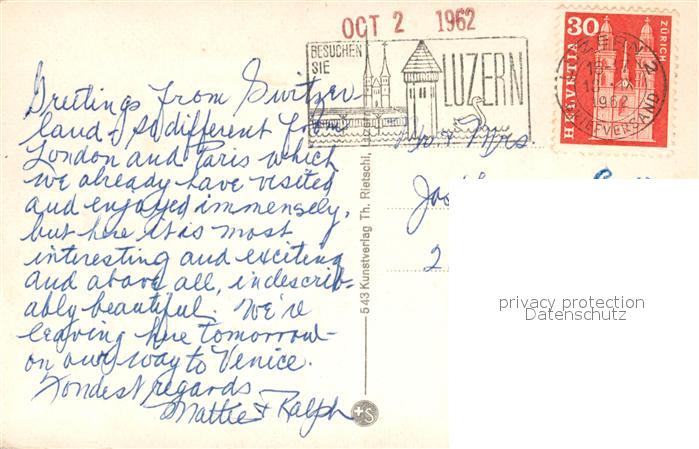 OCT 2 1962
BESUCHEN
SIE
LUZERN
30
HELVETIA
ZÜRICH
LUZERN 2
1962
BRIEFVERSAND
Greetings from Switzer-
land - So different from
London and Paris which
we already have visited
and enjoyed immensely,
but here it is most
interesting and exciting
and above all, indescrib-
ably beautiful. We've
leaving here tomorrow -
on our way to Venice.
Fondest regards
Mattie & Ralph
543 Kunstverlag Th. Rietschi,
+S
Mr. & Mrs.
2
privacy protection
Datenschutz